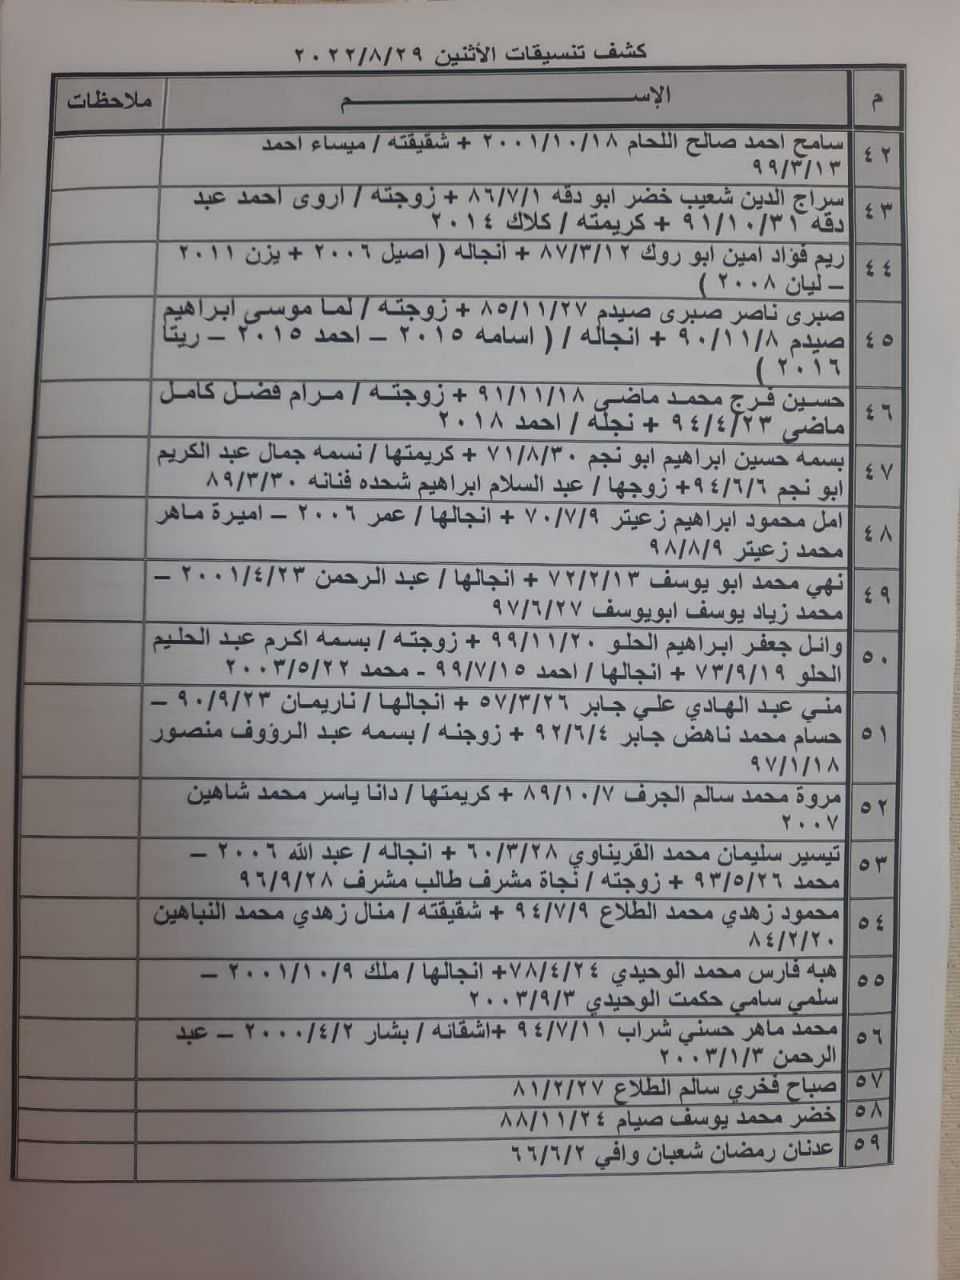 كشف تنسيقات الأثنين ٢٠٢٢/٨/٢٩
م الإســـــــــــــم ملاحظات
٤٢ سامح احمد صالح اللحام ٢٠٠١/١٠/١٨ + شقيقته / ميساء احمد
٩٩/٣/١٣
٤٣ سراج الدين شعيب خضر ابو دقه ٨٦/٧/١ + زوجته / اروى احمد عبد
دقه ٩١/١٠/٣١ + كريمته / كلاك ٢٠١٤
٤٤ ريم فؤاد امين ابو روك ٨٧/٣/١٢ + انجاله ( اصيل ٢٠٠٦ + يزن ٢٠١١
– ليان ٢٠٠٨ )
٤٥ صبرى ناصر صبرى صيدم ٨٥/١١/٢٧ + زوجته / لما موسى ابراهيم
صيدم ٩٠/١١/٨ + انجاله / ( اسامه ٢٠١٥ – احمد ٢٠١٥ – ريتا
٢٠١٦ )
٤٦ حسين فرج محمد ماضى ٩١/١١/١٨ + زوجته / مرام فضل كامل
ماضي ٩٤/٤/٢٣ + نجله / احمد ٢٠١٨
٤٧ بسمه حسين ابراهيم ابو نجم ٧١/٨/٣٠ + كريمتها / نسمه جمال عبد الكريم
ابو نجم ٩٤/٦/٦+ زوجها / عبد السلام ابراهيم شحده فنانه ٨٩/٣/٣٠
٤٨ امل محمود ابراهيم زعيتر ٧٠/٧/٩ + انجالها / عمر ٢٠٠٦ – اميرة ماهر
محمد زعيتر ٩٨/٨/٩
٤٩ نهي محمد ابو يوسف ٧٢/٢/١٣ + انجالها / عبد الرحمن ٢٠٠١/٤/٢٣ –
محمد زياد يوسف ابويوسف ٩٧/٦/٢٧
٥٠ وائل جعفر ابراهيم الحلو ٩٩/١١/٢٠ + زوجته / بسمه اكرم عبد الحليم
الحلو ٧٣/٩/١٩ + انجالها / احمد ٩٩/٧/١٥ - محمد ٢٠٠٣/٥/٢٢
٥١ مني عبد الهادي علي جابر ٥٧/٣/٢٦ + انجالها / ناريمان ٩٠/٩/٢٣ –
حسام محمد ناهض جابر ٩٢/٦/٤ + زوجته / بسمه عبد الرؤوف منصور
٩٧/١/١٨
٥٢ مروة محمد سالم الجرف ٨٩/١٠/٧ + كريمتها / دانا ياسر محمد شاهين
٢٠٠٧
٥٣ تيسير سليمان محمد القريناوي ٦٠/٣/٢٨ + انجاله / عبد الله ٢٠٠٦ –
محمد ٩٣/٥/٢٦ + زوجته / نجاة مشرف طالب مشرف ٩٦/٩/٢٨
٥٤ محمود زهدي محمد الطلاع ٩٤/٧/٩ + شقيقته / منال زهدي محمد النباهين
٨٤/٢/٢٠
٥٥ هبه فارس محمد الوحيدي ٧٨/٤/٢٤+ انجالها / ملك ٢٠٠١/١٠/٩ –
سلمي سامي حكمت الوحيدي ٢٠٠٣/٩/٣
٥٦ محمد ماهر حسني شراب ٩٤/٧/١١ +اشقائه / بشار ٢٠٠٠/٤/٢ – عبد
الرحمن ٢٠٠٣/١/٣
٥٧ صباح فخري سالم الطلاع ٨١/٢/٢٧
٥٨ خضر محمد يوسف صيام ٨٨/١١/٢٤
٥٩ عدنان رمضان شعبان وافي ٦٦/٦/٢